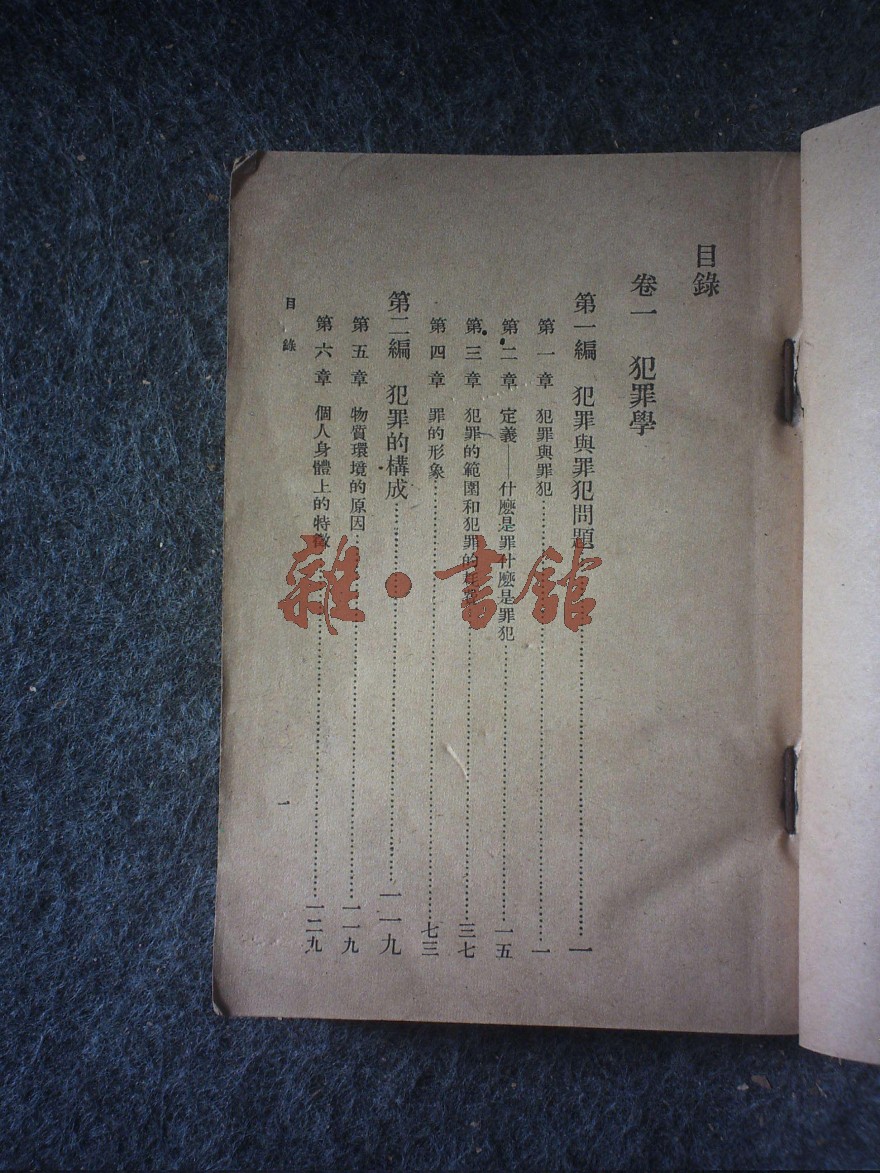 目錄
卷一 犯罪學
第一編 犯罪與罪犯問題……一
第一章 犯罪與罪犯……一
第二章 定義——什麼是罪什麼是罪犯……一五
第三章 犯罪的範圍和犯罪的……三七
第四章 罪的形象……七三
第二編 犯罪的構成……一一九
第五章 物質環境的原因……一一九
第六章 個人身體上的特徵……一二九
目錄
一
雜·書館